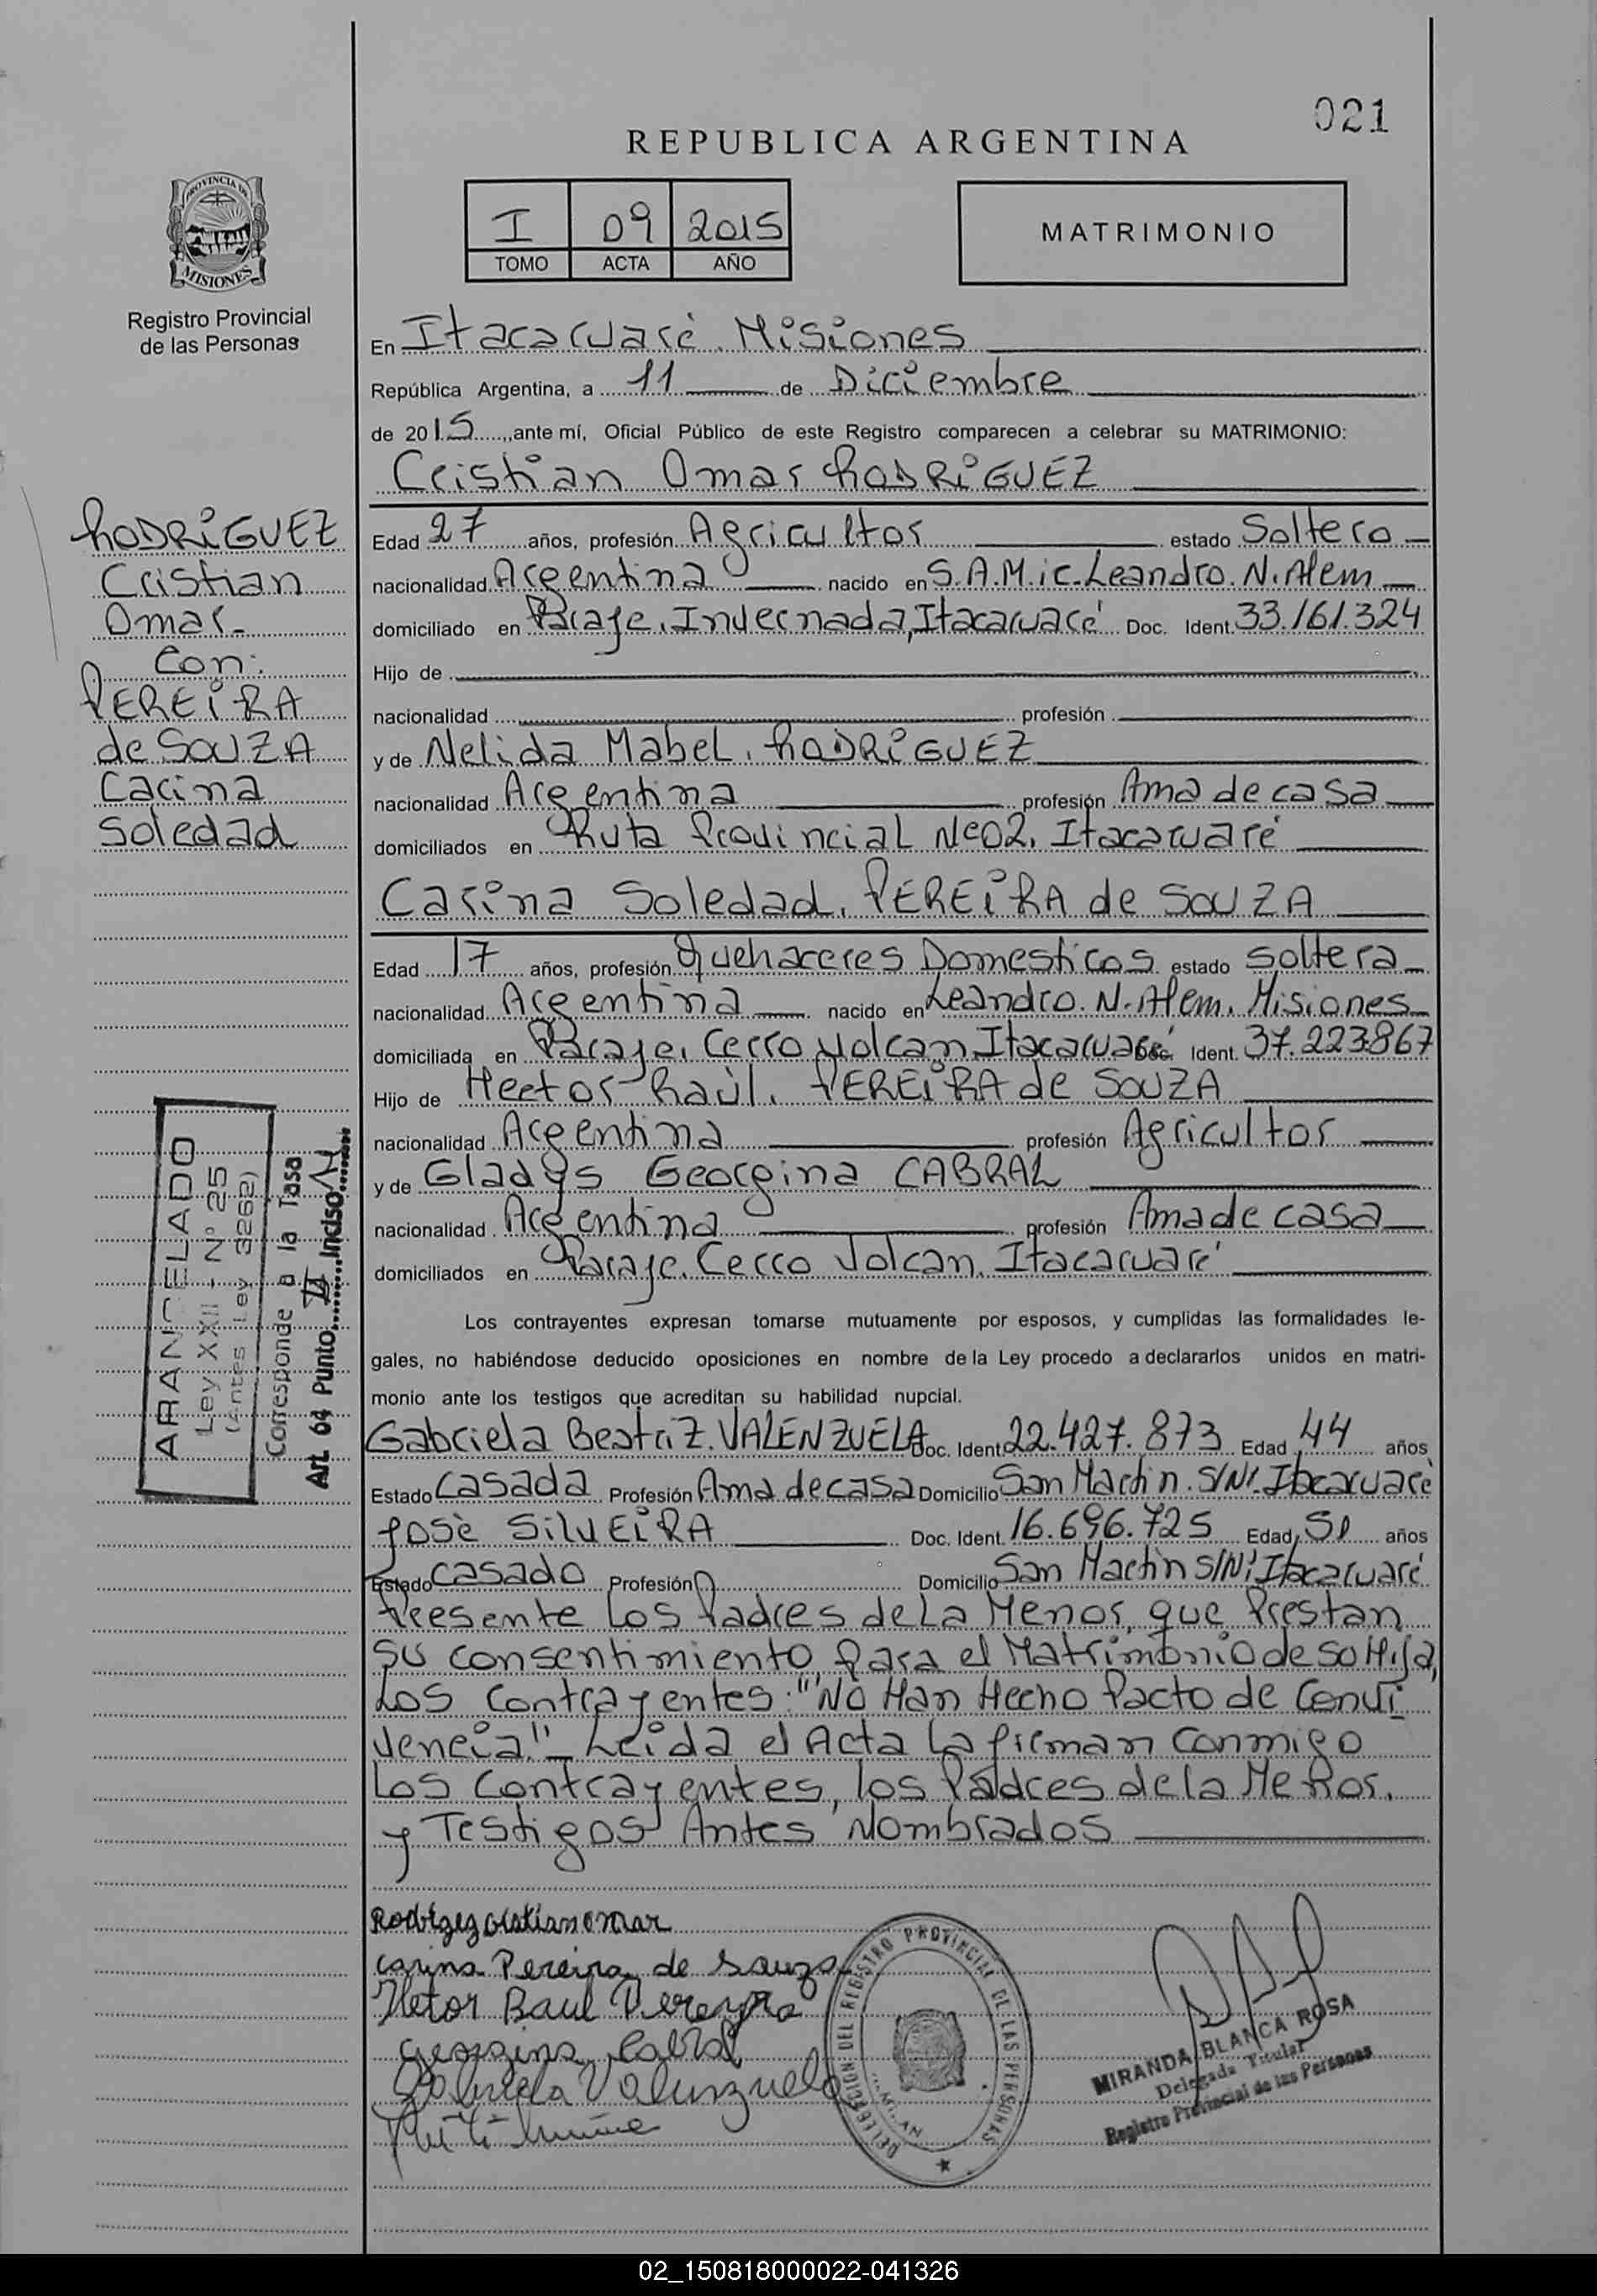 021
REPUBLICA ARGENTINA
I 09 2015
TOMO ACTA AÑO
MATRIMONIO
PROVINCIA DE
MISIONES
Registro Provincial
de las Personas
En Itacaruaré. Misiones
República Argentina, a 11 de Diciembre
de 2015, ante mí, Oficial Público de este Registro comparecen a celebrar su MATRIMONIO:
Cristian Omar RODRiGUEZ
RODRiGUEZ
Cristian
Omar-
Con:
PEREiRA
de SOUZA
Carina
Soledad
Edad 27 años, profesión Agricultor estado Soltero
nacionalidad Argentina nacido en S.A.M.ic.Leandro.N.Alem
domiciliado en Paraje, Invernada, Itacaruaré Doc. Ident. 33.161.324
Hijo de
nacionalidad profesión
y de Nelida Mabel, RODRiGUEZ
nacionalidad Argentina profesión Ama de casa
domiciliados en Ruta Provincial Nº02, Itacaruaré
Carina Soledad, PEREiRA de SOUZA
Edad 17 años, profesión Quehaceres Domesticos estado Soltera
nacionalidad Argentina nacido en Leandro. N. Alem. Misiones
domiciliada en Paraje, Cerro Volcan Itacaruaré Doc. Ident. 37.223.867
Hijo de Hector Raùl, PEREiRA de SOUZA
nacionalidad Argentina profesión Agricultor
y de Gladys Georgina CABRAL
nacionalidad Argentina profesión Ama de casa
domiciliados en Paraje. Cerro Volcan. Itacaruaré
ARANCELADO
Ley XXII - Nº 25
(Antes Ley 3262)
Corresponde a la Tasa
Art. 64 Punto II Inciso
Los contrayentes expresan tomarse mutuamente por esposos, y cumplidas las formalidades le-
gales, no habiéndose deducido oposiciones en nombre de la Ley procedo a declararlos unidos en matri-
monio ante los testigos que acreditan su habilidad nupcial.
Gabriela Beatriz. VALENZUELA Doc. Ident. 22.427.873 Edad 44 años
Estado Casada Profesión Ama de casa Domicilio San Martin. S/Nº. Itacaruaré
Josè SilvEiRA Doc. Ident. 16.696.725 Edad 51 años
Estado Casado Profesión Domicilio San Martin S/Nº Itacaruaré
Presente Los Padres de La Menor, que Prestan
Su consentimiento, para el Matrimonio de so Hija,
Los Contrayentes: "No Han Hecho Pacto de Convi
vencia." Leida el Acta La firman Conmigo
Los Contrayentes, los Padres de la Menor.
y Testigos Antes Nombrados
Carina Pereira de Sauza
Georgina Cabral
Gabriela Valenzuela
DELEGACION DEL REGISTRO PROVINCIAL DE LAS PERSONAS
MIRANDA BLANCA ROSA
Delegada Titular
Registro Provincial de las Personas
02_150818000022-041326